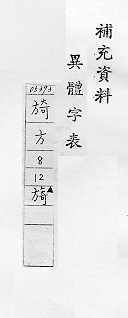 補充資料
異體字表
03393
旑
方
8
12
旖